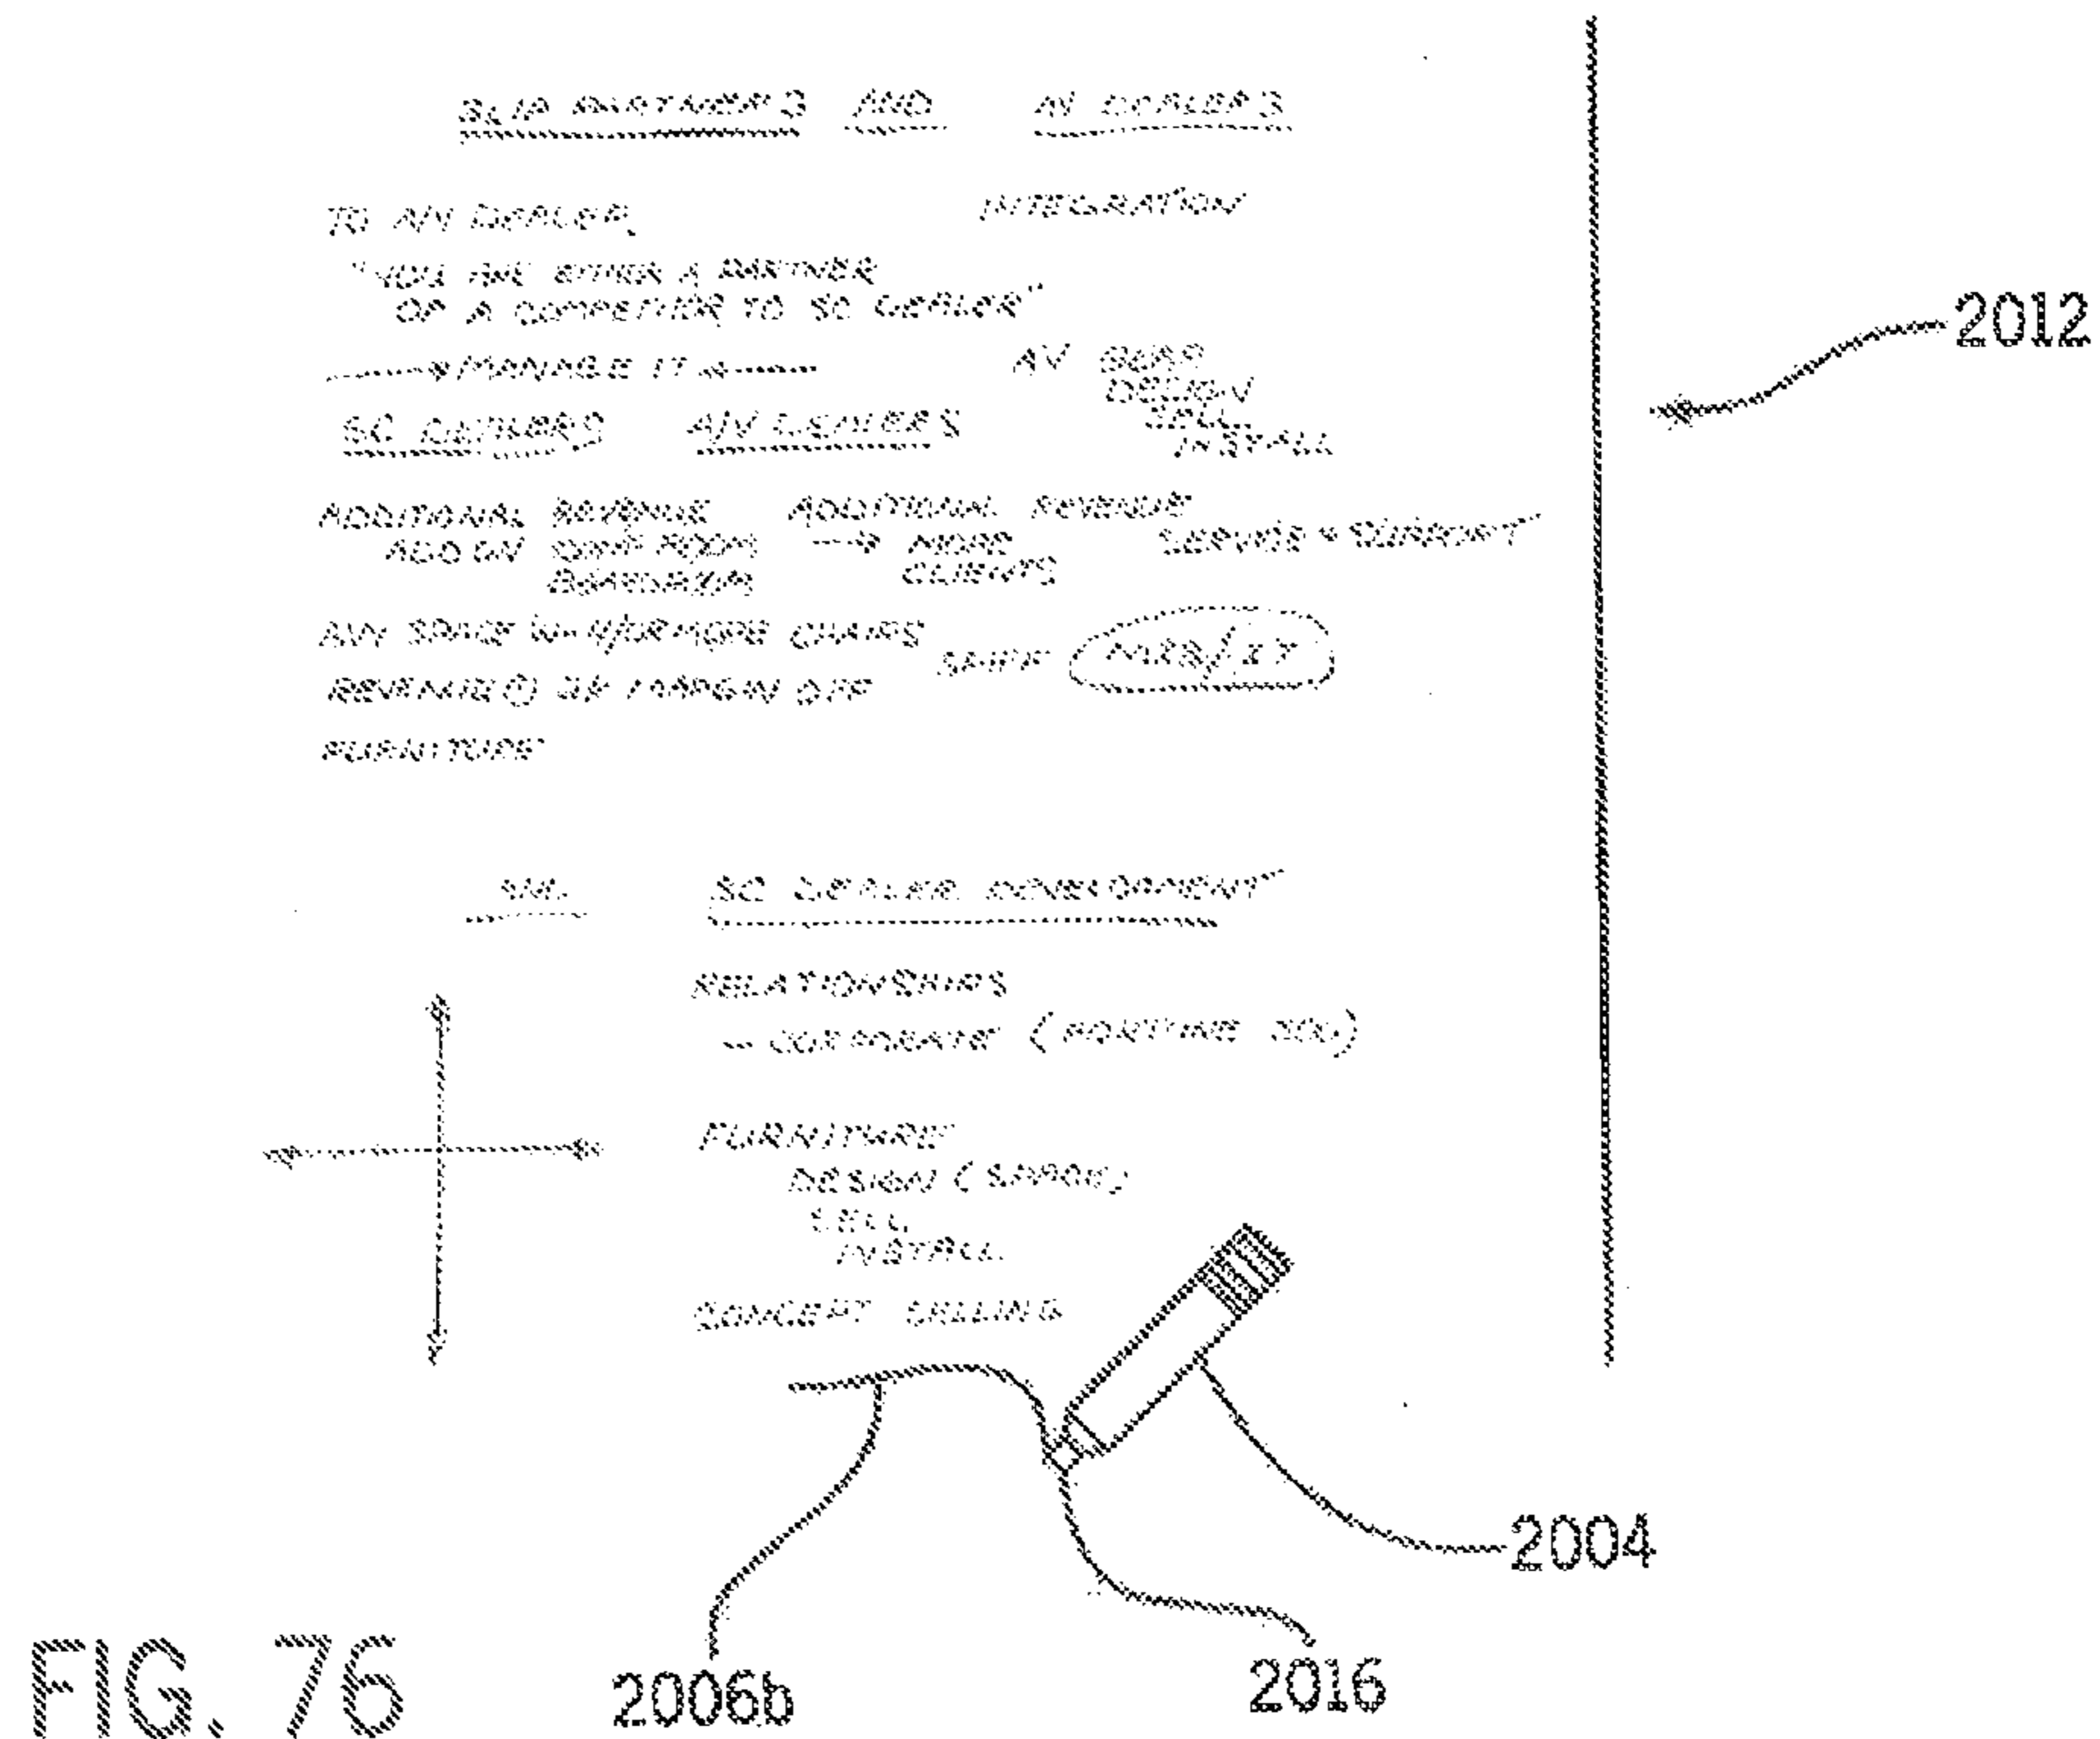 PARTNERS AND AV DEALERS
TO A/V DEALER, INTEGRATION
"YOU ARE EITHER A PARTNER
OR A COMPETITOR TO SC DEALER"
MANAGE IT AV
DESIGN
SELL
INSTALL
SC DEALERS A/V DEALERS
ADDITIONAL REVENUE ADDITIONAL REVENUE SERVICE + SUPPORT
ADD ON MORE
CLIENTS
ANY SPACE 4/OR MORE CHAIRS
MIS/IT
REVENUE MARGIN OFF
FURNITURE
SC DEALER DEVELOPMENT
RELATIONSHIPS
- CORPORATE (FORTUNE 500)
FURNITURE
DESIGN (SPACE)
SELL
INSTALL
CONCEPT SELLING
2012
2004
2016
2006b
FIG. 76